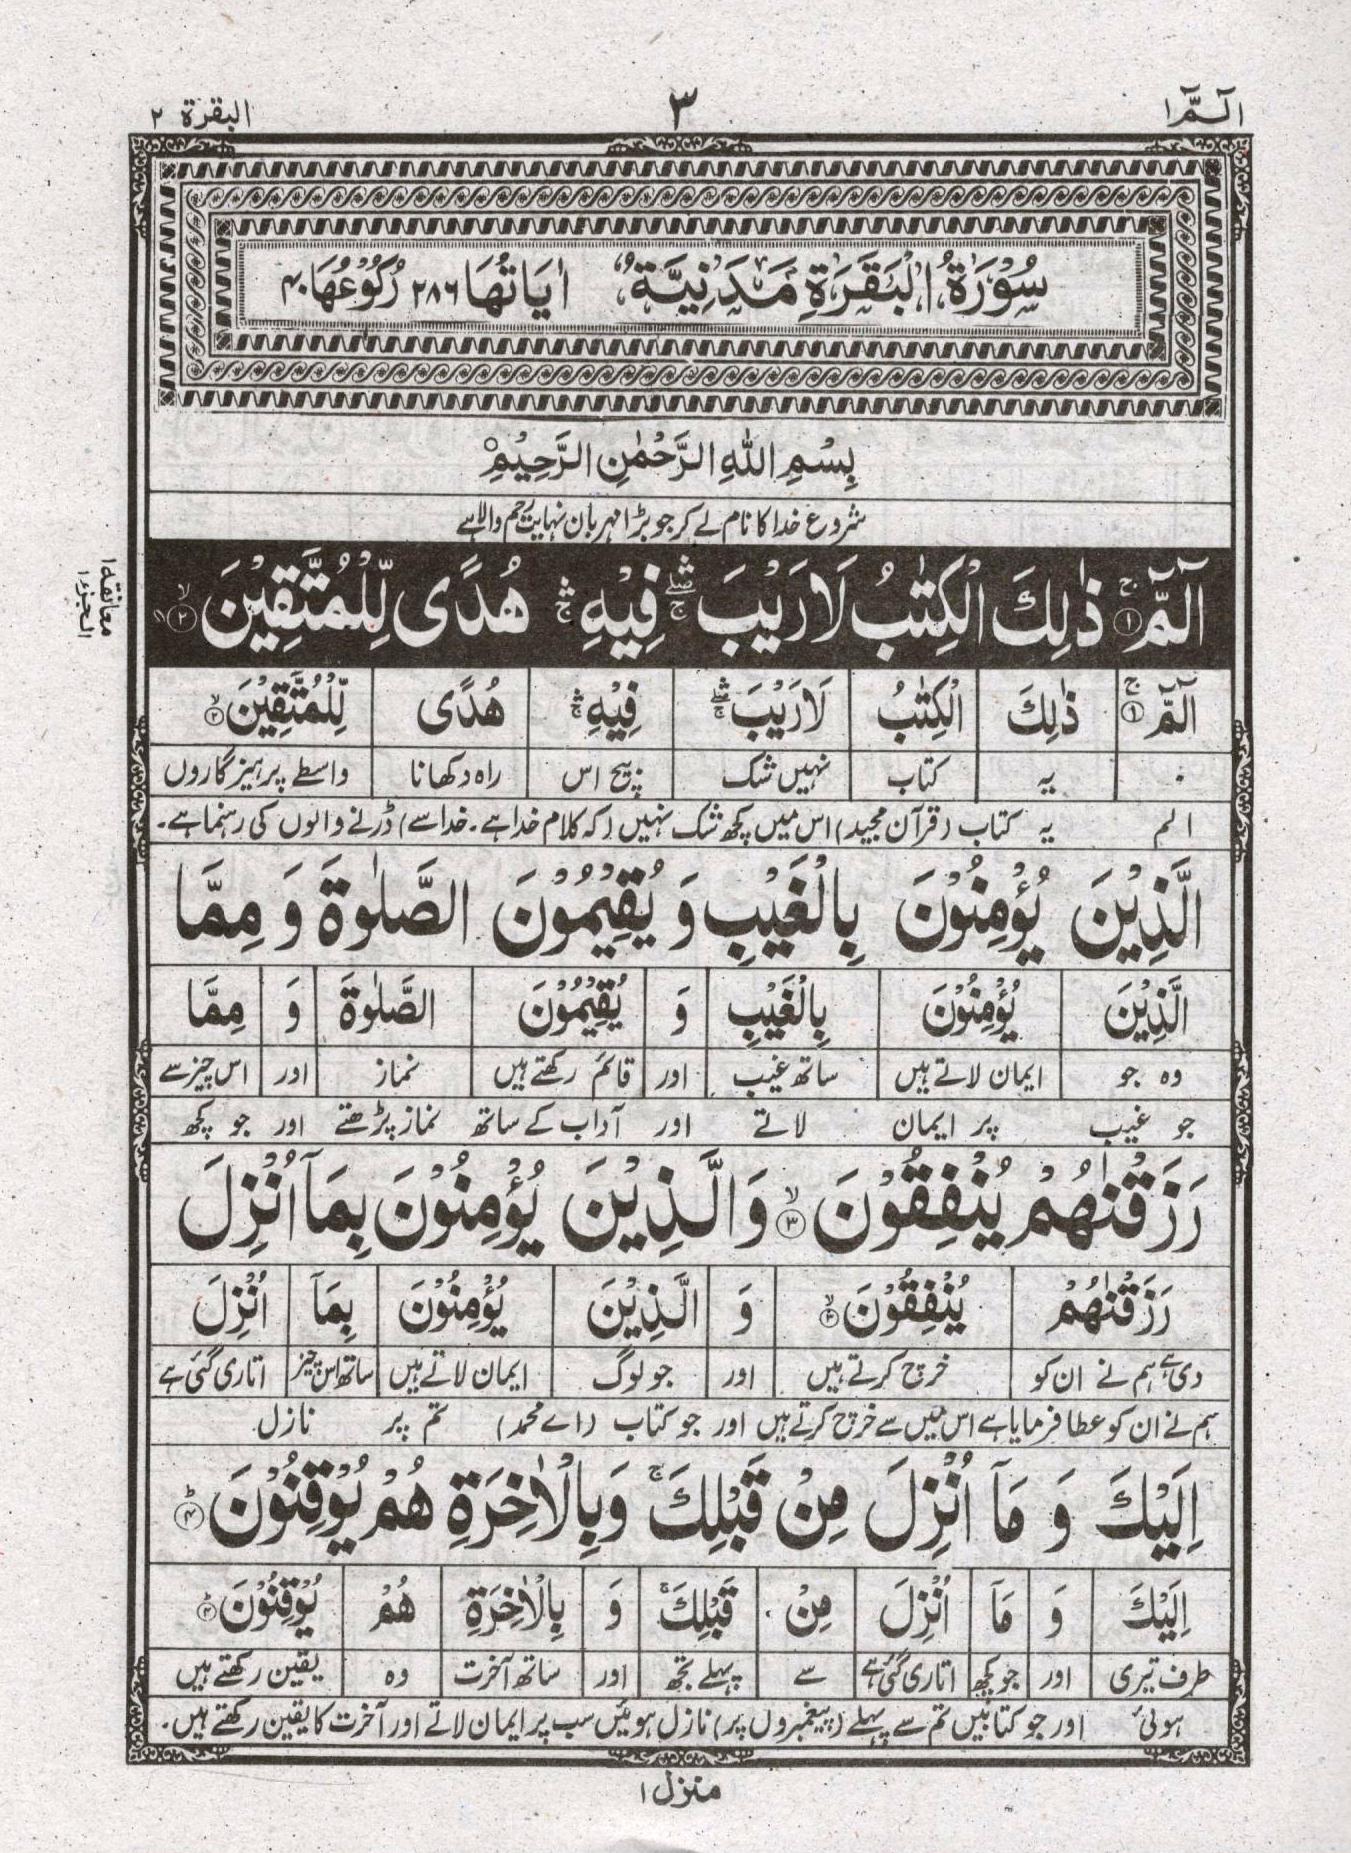 الٓـمّٓ ١ ٣ البقرة ٢
سُوْرَةُ الْبَقَرَةِ مَدَنِيَّةٌ اٰيَاتُهَا ٢٨٦ رُكُوْعُهَا ۴۰
بِسْمِ اللّٰهِ الرَّحْمٰنِ الرَّحِيْمِ
شروع خدا کا نام لے کر جو بڑا مہربان نہایت رحم والا ہے
معانقه ١
الٓمّٓ ۚ ﴿١﴾ ذٰلِكَ الْكِتٰبُ لَا رَيْبَ ۛ فِيْهِ ۛ هُدًى لِّلْمُتَّقِيْنَ ۙ ﴿٢﴾
الٓمّٓ ۚ ﴿١﴾ ذٰلِكَ الْكِتٰبُ لَا رَيْبَ ۛ فِيْهِ ۛ هُدًى لِّلْمُتَّقِيْنَ ۙ ﴿٢﴾
۰ یہ کتاب نہیں شک بیچ اس راہ دکھانا واسطے پرہیزگاروں
الم یہ کتاب (قرآن مجید) اس میں کچھ شک نہیں (کہ کلام خدا ہے۔ خدا سے) ڈرنے والوں کی رہنما ہے۔
الَّذِيْنَ يُؤْمِنُوْنَ بِالْغَيْبِ وَ يُقِيْمُوْنَ الصَّلٰوةَ وَ مِمَّا
الَّذِيْنَ يُؤْمِنُوْنَ بِالْغَيْبِ وَ يُقِيْمُوْنَ الصَّلٰوةَ وَ مِمَّا
وہ جو ایمان لاتے ہیں ساتھ غیب اور قائم رکھتے ہیں نماز اور اس چیز سے
جو غیب پر ایمان لاتے اور آداب کے ساتھ نماز پڑھتے اور جو کچھ
رَزَقْنٰهُمْ يُنْفِقُوْنَ ۙ ﴿٣﴾ وَالَّذِيْنَ يُؤْمِنُوْنَ بِمَآ اُنْزِلَ
رَزَقْنٰهُمْ يُنْفِقُوْنَ ۙ ﴿٣﴾ وَ الَّذِيْنَ يُؤْمِنُوْنَ بِمَآ اُنْزِلَ
دی ہے ہم نے ان کو خرچ کرتے ہیں اور جو لوگ ایمان لاتے ہیں ساتھ اس چیز اتاری گئی ہے
ہم نے ان کو عطا فرمایا ہے اس میں سے خرچ کرتے ہیں اور جو کتاب (اے محمد) تم پر نازل
اِلَيْكَ وَ مَآ اُنْزِلَ مِنْ قَبْلِكَ ۚ وَبِالْاٰخِرَةِ هُمْ يُوْقِنُوْنَ ؕ ﴿۴﴾
اِلَيْكَ وَ مَآ اُنْزِلَ مِنْ قَبْلِكَ ۚ وَ بِالْاٰخِرَةِ هُمْ يُوْقِنُوْنَ ؕ ﴿۴﴾
طرف تیری اور جو کچھ اتاری گئی ہے سے پہلے تجھ اور ساتھ آخرت وہ یقین رکھتے ہیں
ہوئی اور جو کتابیں تم سے پہلے (پیغمبروں پر) نازل ہوئیں سب پر ایمان لاتے اور آخرت کا یقین رکھتے ہیں۔
منزل ١